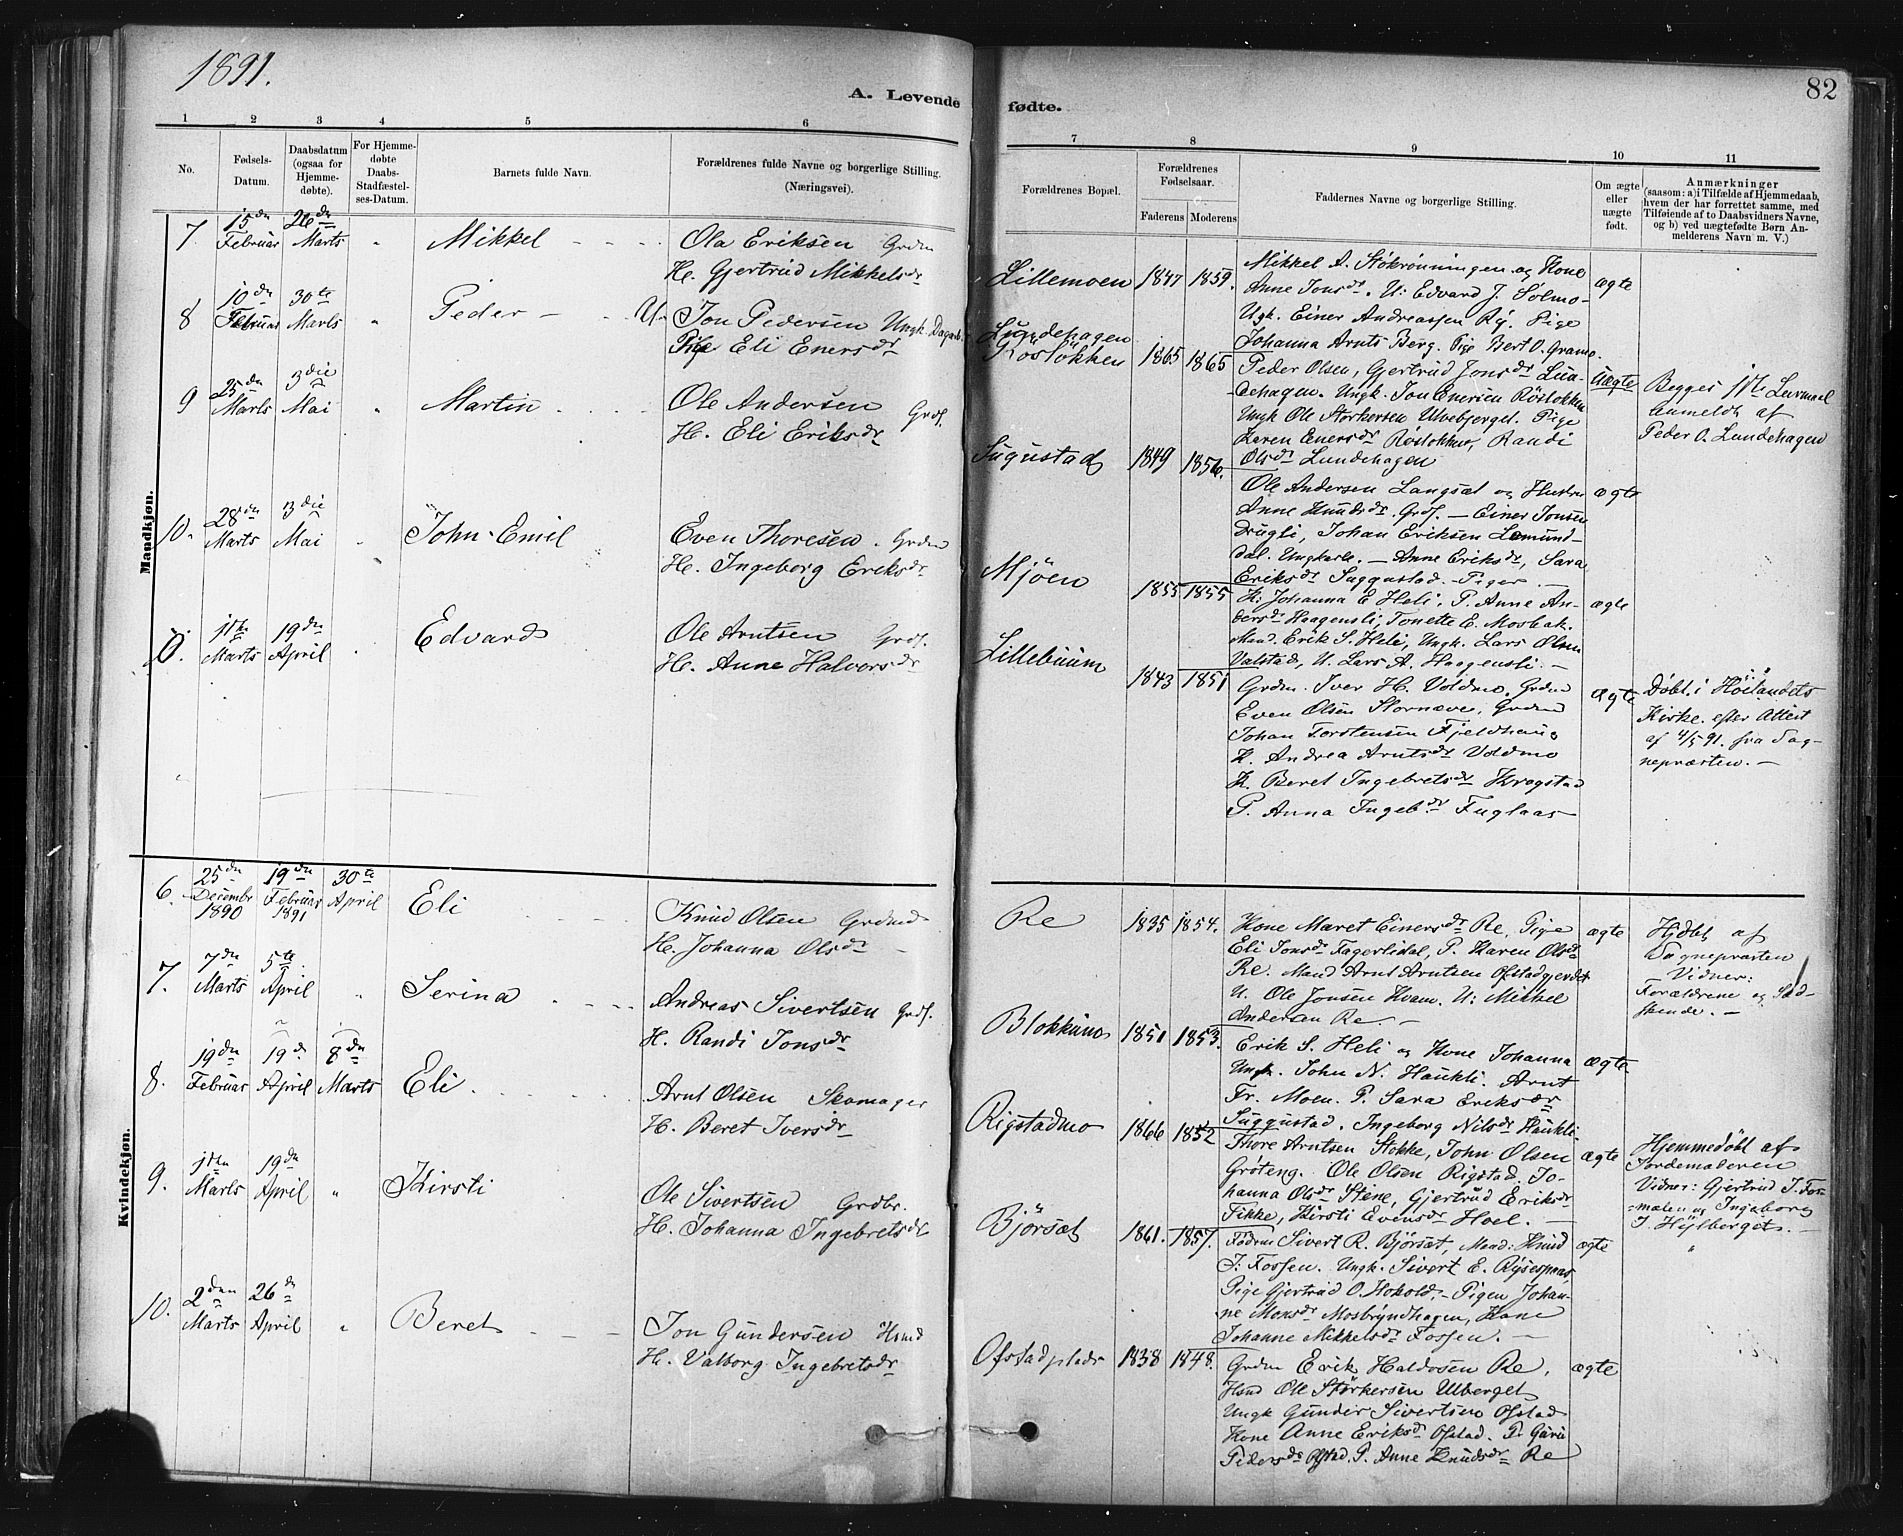 1891.
82
A. Levende fødte.
1 2 3 4 5 6 7 8 9 10 11
No.
Fødsels-
Datum.
Daabsdatum
(ogsaa for
Hjemme-
døbte).
For Hjemme-
døbte
Daabs-
Stadfæstel-
ses-Datum.
Barnets fulde Navn.
Forældrenes fulde Navne og borgerlige Stilling.
(Næringsvei).
Forældrenes Bopæl.
Forældrenes
Fødselsaar.
Faderens Moderens
Faddernes Navne og borgerlige Stilling.
Om ægte
eller
uægte
født.
Anmærkninger
(saasom: a) i Tilfælde af Hjemmedaab,
hvem der har forrettet samme, med
Tilføiende af to Daabsvidners Navne,
og b) ved uægtefødte Børn An-
melderens Navn m. V.)
Mandkjøn.
7 15de Februar 26de Marts " Mikkel
Ola Eriksen Grdm
H. Gjertrud Mikkelsdr
Lillemoen 1847 1859.
Mikkel A. Stökrønningen og Kone
Anne Jonsdr. U: Edvard J. Solmo
Ungk. Einer Andreassen Ry. Pige
Johanna Arnts Berg. Pige Berit O. Gramo.
ægte
8 10de Februar 30te Marts " Peder
U. Jon Pedersen Ungk. Dagarb.
Pige Eli Enersdr
Lundehagen
Röstökken 1865 1865
Peder Olsen, Gjertrud Jonsdr Lun-
dehagen. Ungk. Jon Enersen Röstokken
Ungk Ole Storkersen Ulvebjerget. Pige
Karen Enersdr Röstokken, Randi
Olsdr Lundehagen
Uægte
Begges 1ste Leiermaal
Anmeldt af
Peder O. Lundehagen
9 25de Marts 3die Mai " Martin
Ole Andersen Grdf.
H. Eli Eriksdr
Sugustad 1849 1856.
Ole Andersen Langsæt og Hustru
Anne Knudsdr. Grdf. — Einer Jonsen
Drugli, Johan Eriksen Lomund-
dal. Ungkarle. — Anne Eriksdr, Sara
Eriksdr Suggustad. Piger. —
ægte
10. 28de Marts 3die Mai John Emil
Even Thoresen. Grdm
H. Ingeborg Eriksdr
Mjöen 1855 1855
K: Johanna E Heli, P. Anne An-
dersdr Haagensli, Tonette E. Mosbak.
Mand. Erik S. Heli, Ungk. Lars Olsen
Valstad, U. Lars A. Haagensli. —
ægte
11te Marts 19de April Edvard
Ole Arntsen Grdf.
H. Anne Halvorsdr
Lillebuum 1843 1851
Grdm. Iver H. Voldmo. Grdm
Even Olsen Stornæve, Grdm
Johan Torstensen Fjeldhaug
K. Andrea Arntsdr Voldmo
K. Beret Ingebretsdr Krogstad
P. Anna Ingebdr Fuglaas
ægte
Döbt i Höilandets
Kirke. efter Attest
af 4/5 91. fra Sog-
nepræsten. —
Kvindekjøn.
6. 25de Decembr 1890 19de Februar 1891 30te April Eli
Knud Olsen Grdmd
H. Johanna Olsdr
Re 1835 1854.
Kone Maret Einersdr Re, Pige
Eli Jonsdr Fagerlidal, P. Karen Olsdr
Re. Mand Arnt Arntsen Ofstadgjerdet
U. Ole Jonsen Kvam. U: Mikkel
Andersen Re. —
ægte
Hjdbt af
Sognepræsten
Vidner:
Forældrene og
7. 7de Marts 5te April " Serina
Andreas Sivertsen Grdf.
H. Randi Jonsdr
Blokkumo 1851 1853.
Erik S. Heli og Kone Johanna
Ungk. John N. Haukli. Arnt
Fr. Moen. P. Sara Eriksdr
Suggustad. Ingeborg Nilsdr Haukli
ægte
8. 19de Februar 19de April 8de Marts Eli.
Arnt Olsen Skomager
H. Beret Iversdr
Rigstadmo 1866 1852
Thore Arntsen Stokke, John Olsen
Gröteng. Ole Olsen Rigstad. Jo-
hanna Olsdr Stene, Gjertrud Eriksdr
Fikke, Kirsti Evensdr Hoel. —
ægte
Hjemmedöbt af
Jordemoderen
Vidner: Gjertrud J. Fos-
moien og Ingeborg
J. Höjlberget. —
9. 11te Marts 19de April " Kirsti
Ole Sivertsen Grdbr.
H. Johanna Ingebretsdr
Björset 1861. 1857.
Födm Sivert R. Björset, Mand: Knud
J. Fossen. Ungk. Sivert E. Rysesplads
Pige Gjertrud O. Hokold. — Pigen Johan-
ne Monsdr Mosbryndhagen, Kone
Johanne Mikkelsdr Fossen. —
ægte "
10. 2den Marts 26de April " Beret
Jon Gundersen Hsmd
H. Valborg Ingebretsdr
Ofstadplads 1838 1848.
Grdm Erik Haldosen Re,
Hsmd Ole Störkersen Ulberget
Ungk Gunder Sivertsen Ofstad
Kone Anne Eriksdr Ofstad. P. Guru
Pedersdr Ofstad. P. Anne Knudsdr Re
ægte